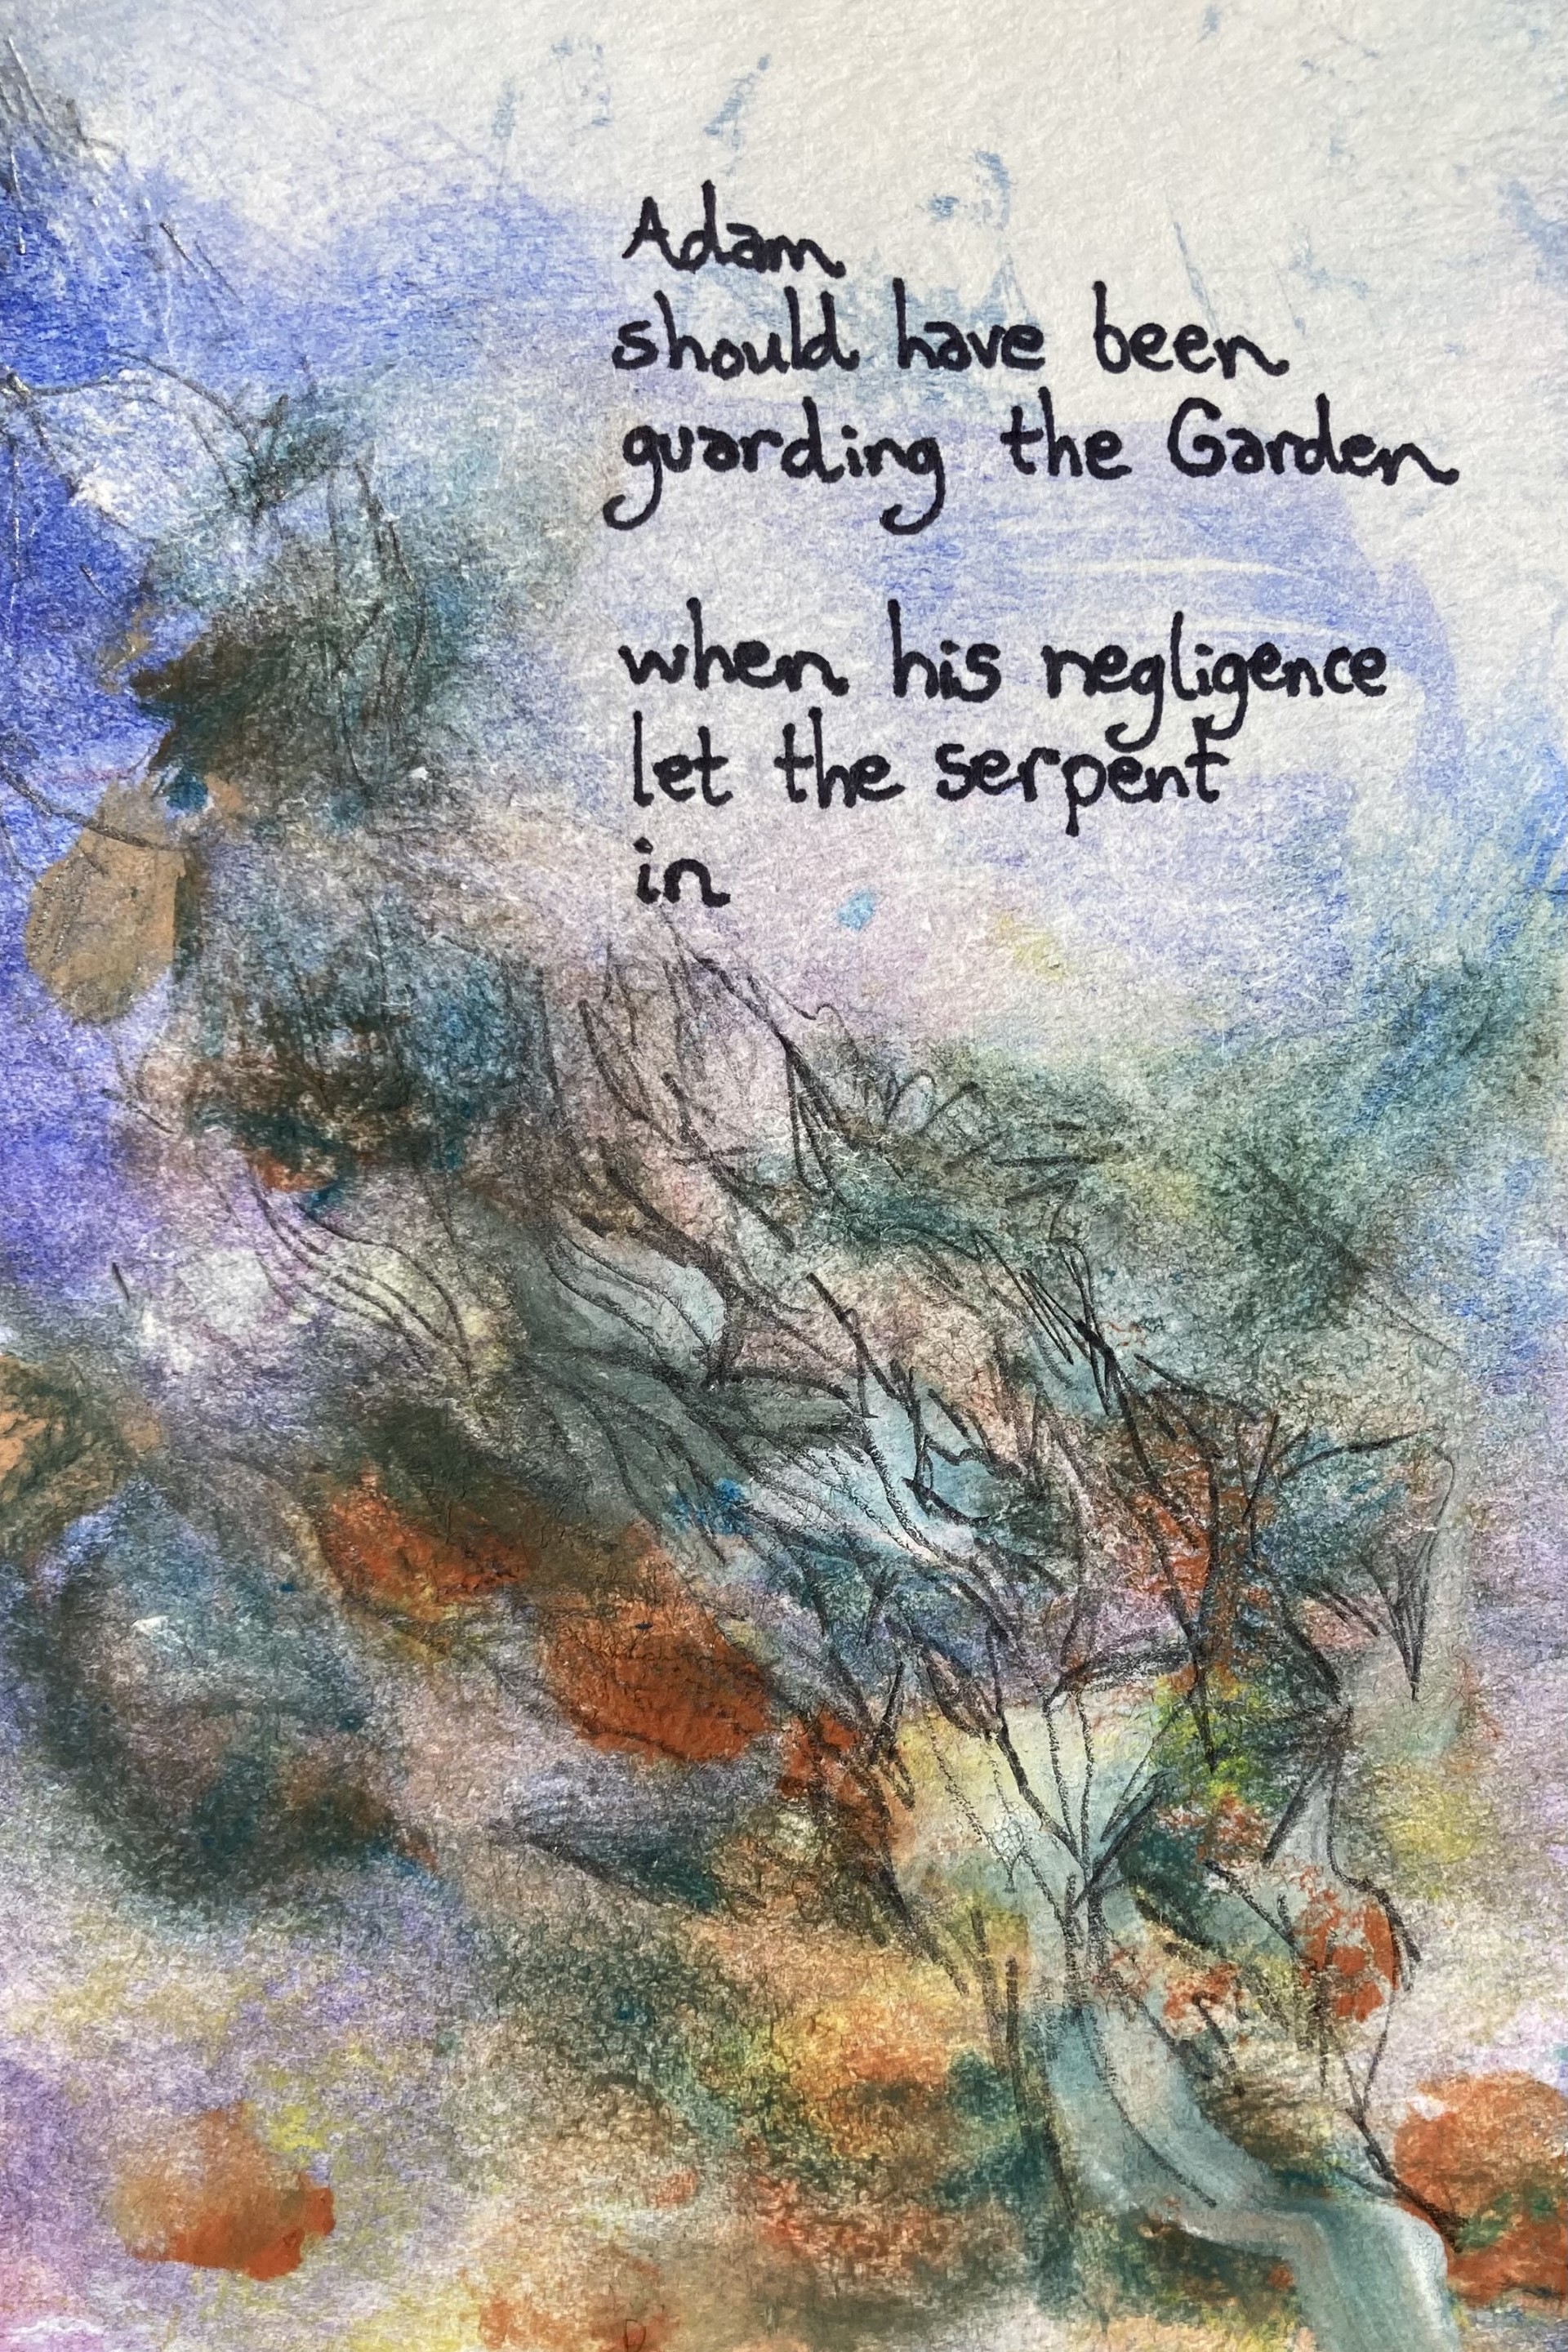 Adam
should have been
guarding the Garden
when his negligence
let the serpent
in